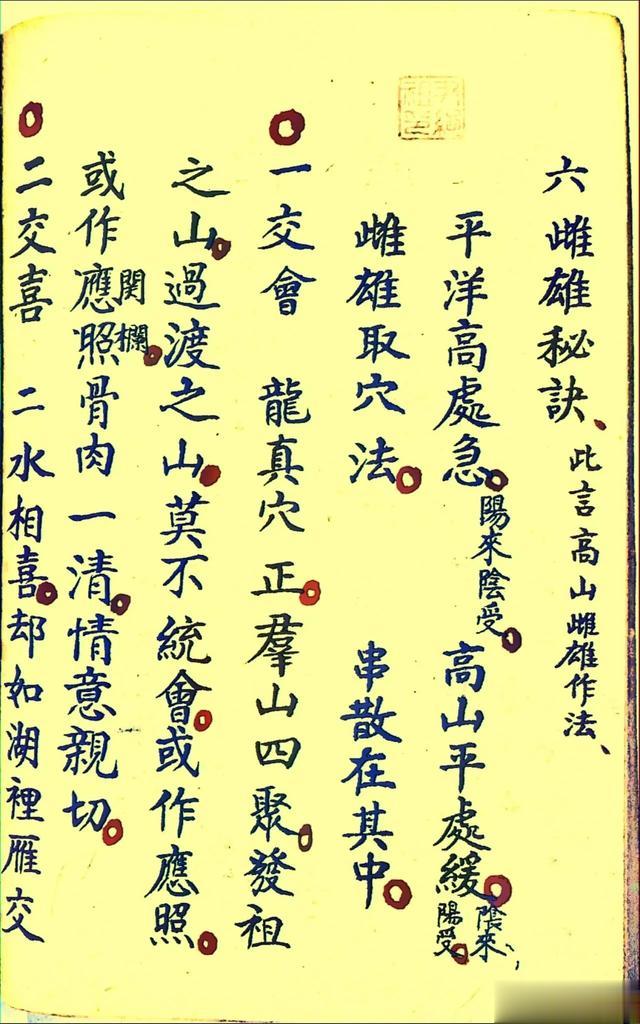 六雌雄秘訣、此言高山雌雄作法、
平洋高處急。陽來陰受。高山平處緩。陰來陽受。
雌雄取穴法。串散在其中。
一交會 龍真穴正。羣山四聚。發祖
之山。過渡之山。莫不統會。或作應照。
或作應照関欄。骨肉一清。情意親切。
二交喜 二水相喜。却如湖裡雁交